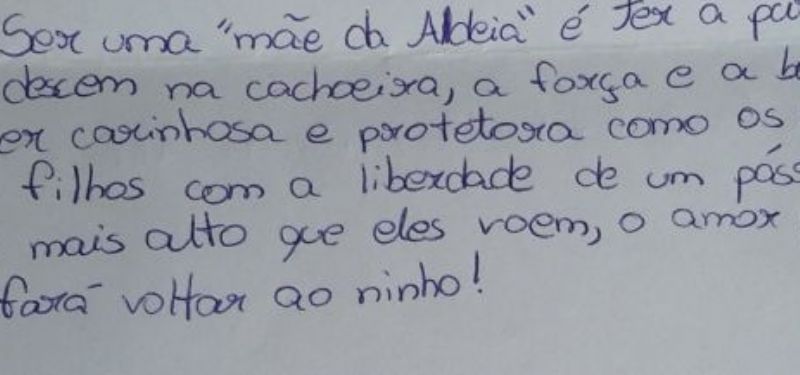 Ser uma "mãe da Aldeia" é ter a
descem na cachoeira, a força e a
carinhosa e protetora como os
filhos com a liberdade de um
mais alto que eles voem, o amor
fará voltar ao ninho!